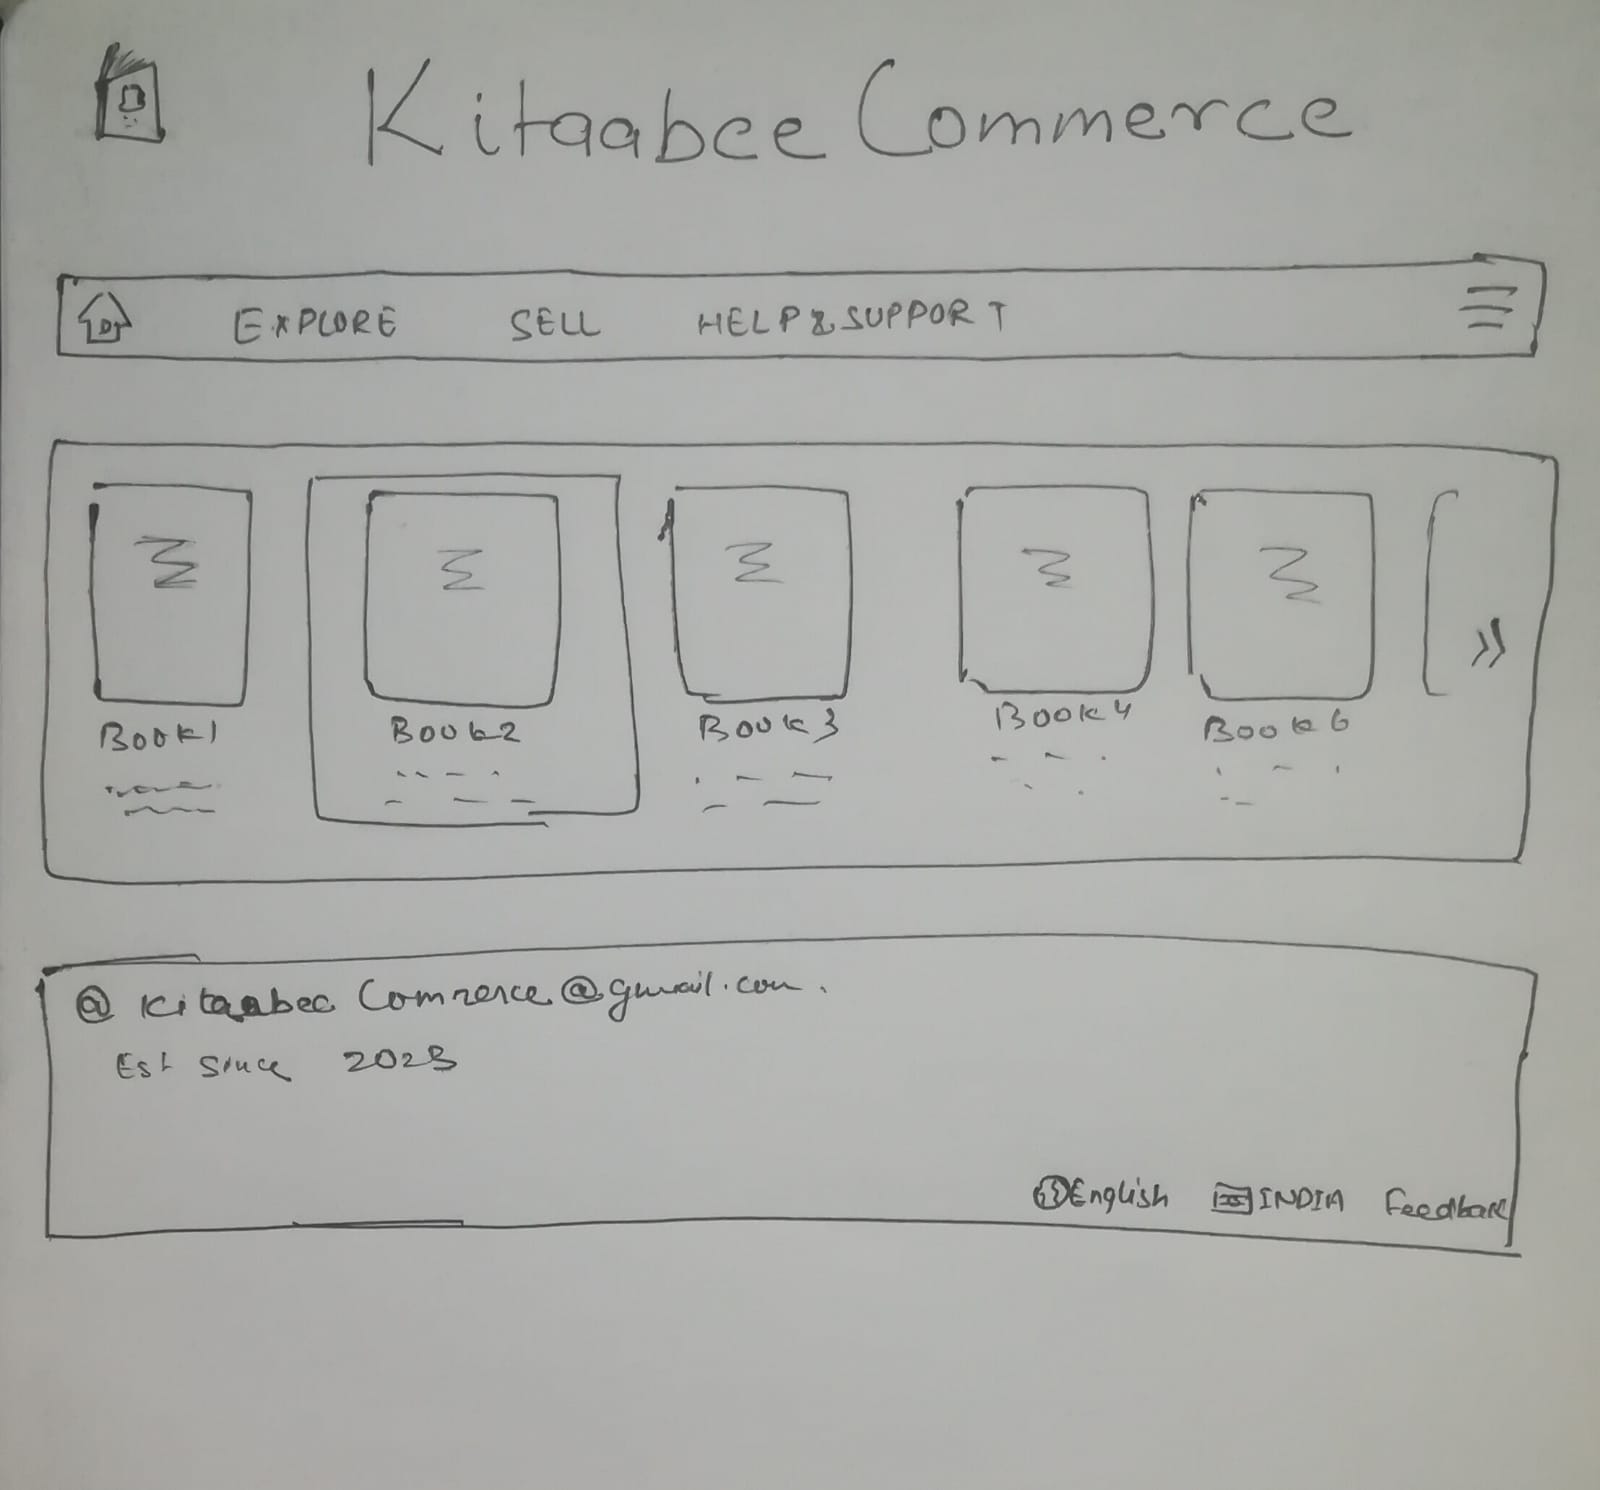 Kitaabee Commerce
EXPLORE SELL HELP & SUPPORT
Book1 Book2 Book3 Book4 Book6
@ Kitaabee Commerce@gmail.com.
Est Since 2023
English INDIA Feedback